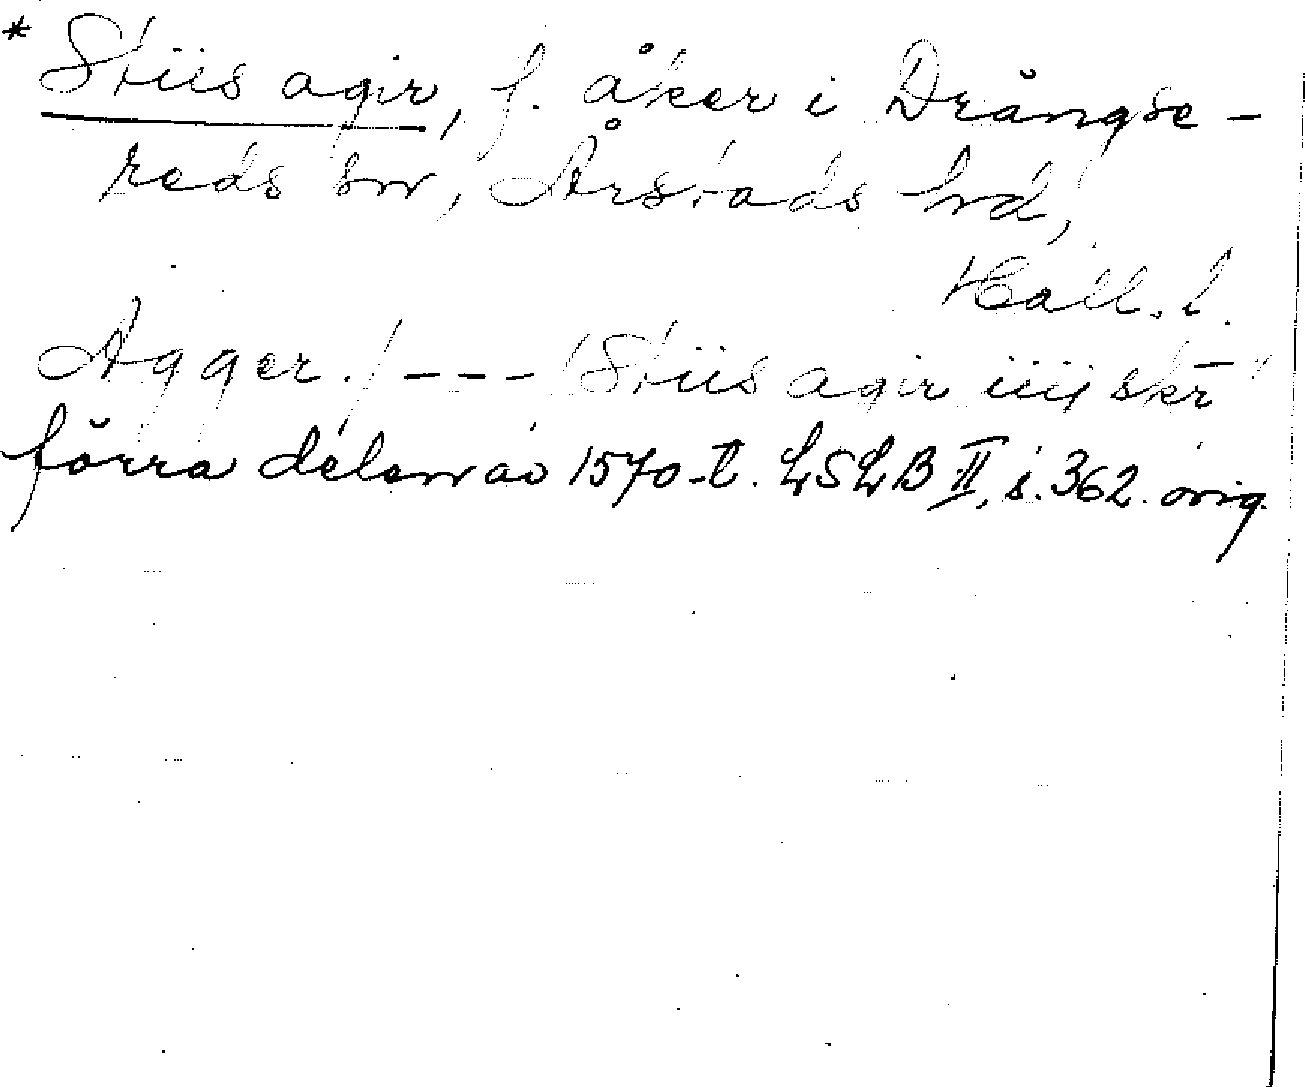 * Stiis agir, f. åker i Drängse-
reds sn, Årstads hd,
Hall. l.
Agger. / --- "Stiis agir iiij skr̄"
förra delen av 1570-t. LSLB II, s. 362. orig.